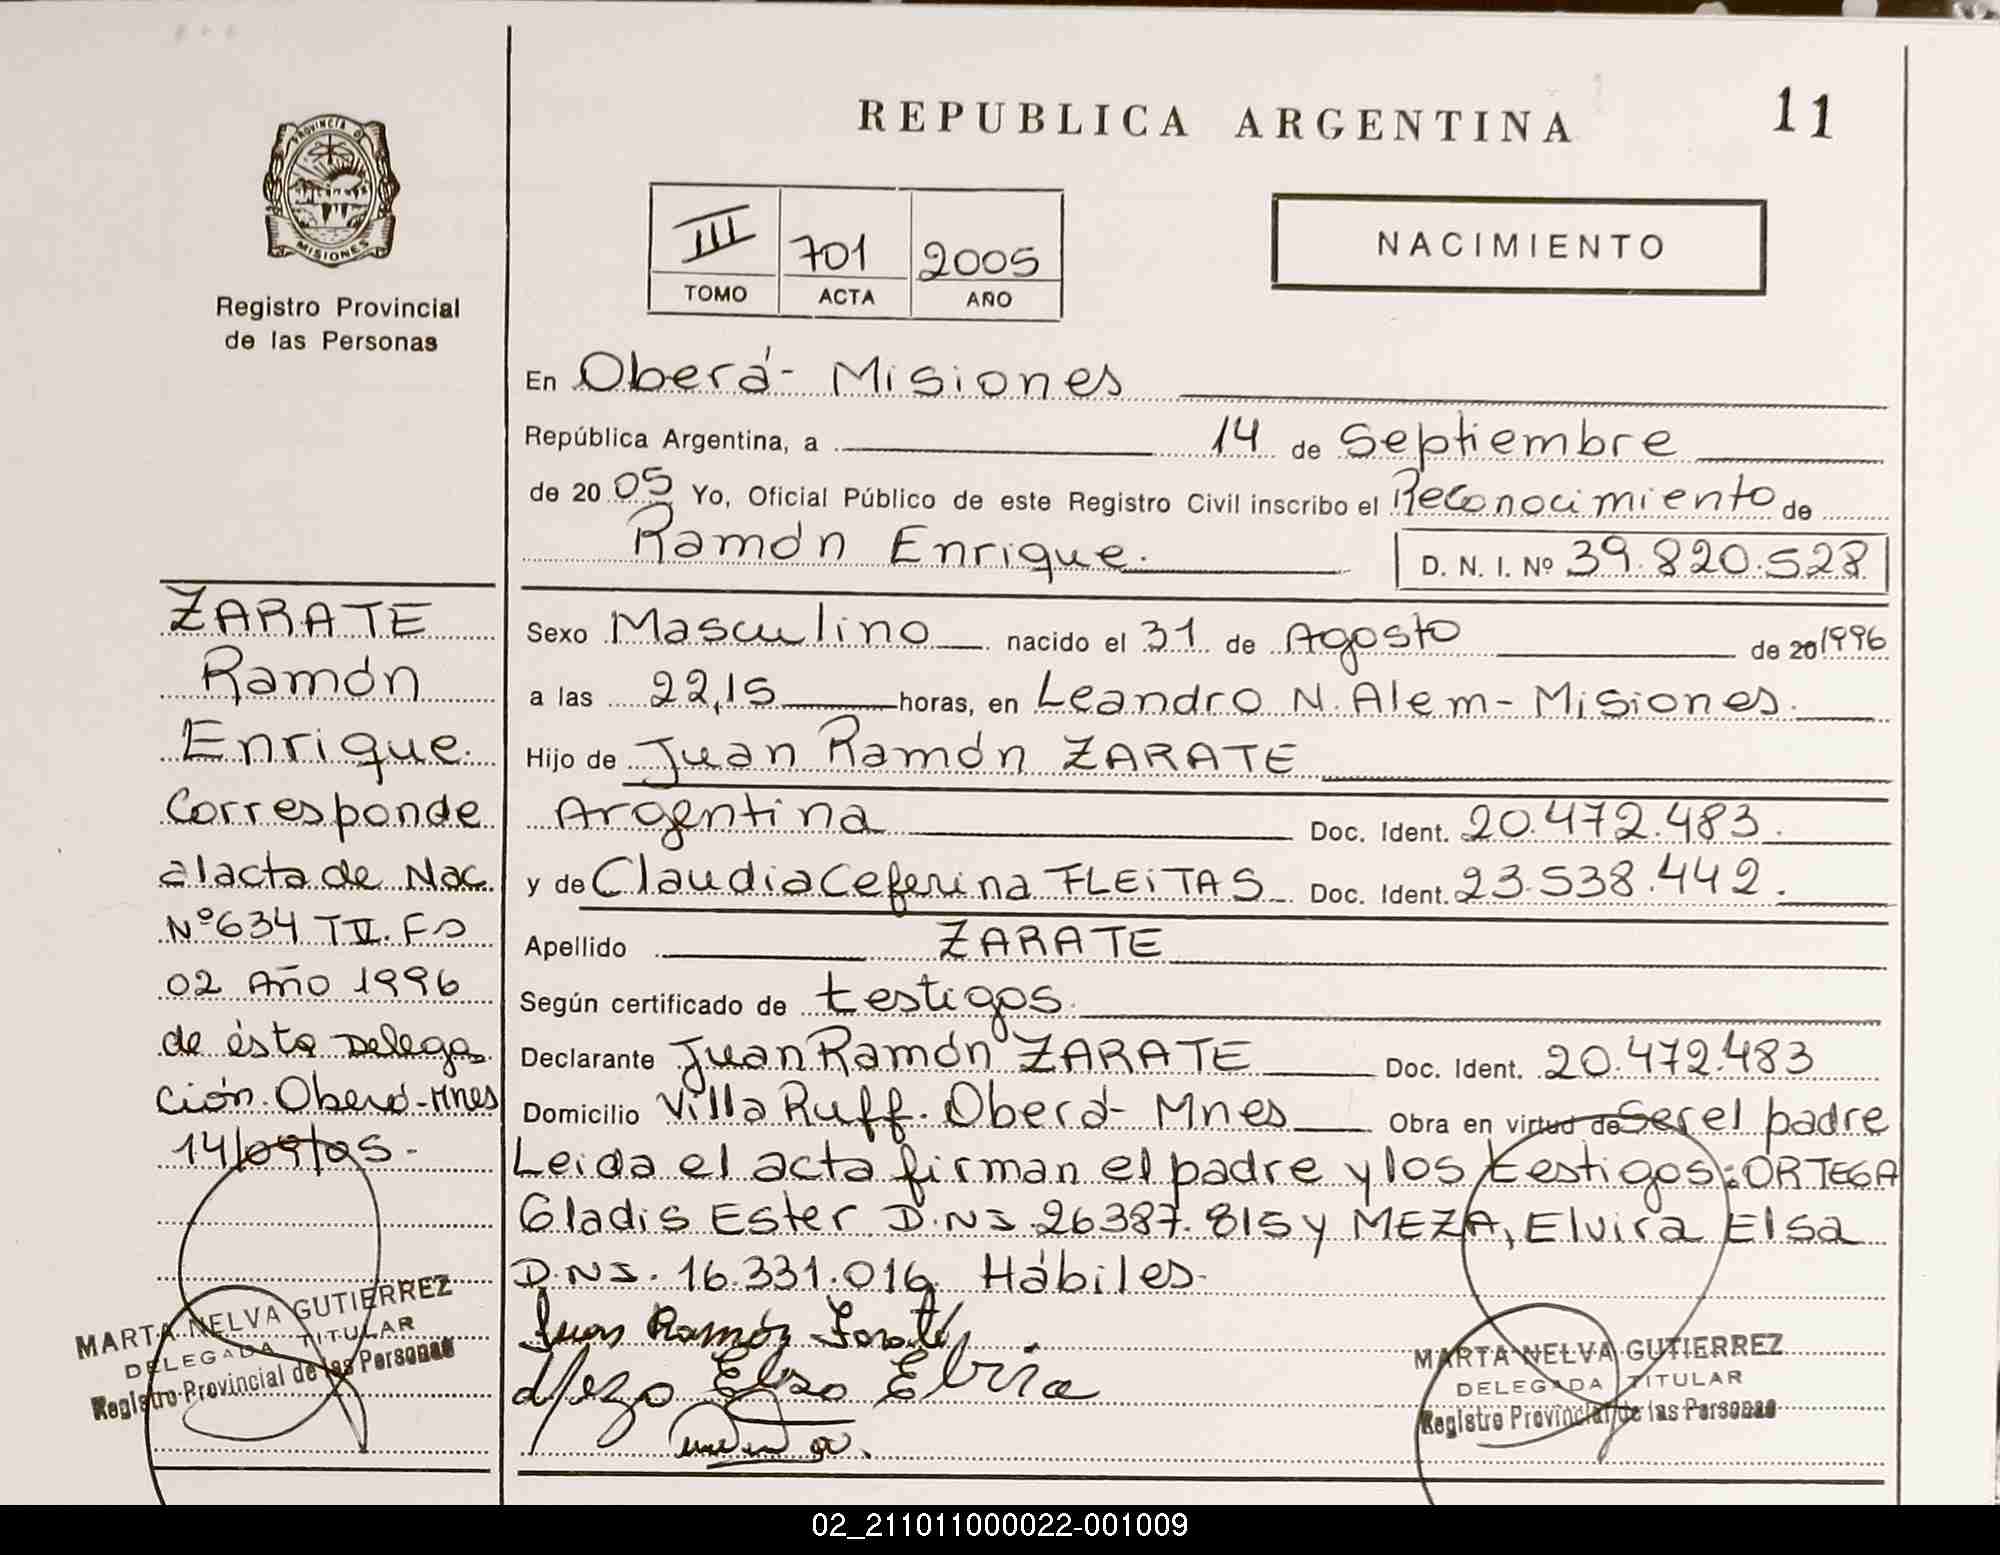 REPUBLICA ARGENTINA
11
PROVINCIA DE
MISIONES
Registro Provincial
de las Personas
III 701 2005
TOMO ACTA AÑO
NACIMIENTO
En Oberá - Misiones
República Argentina, a 14 de Septiembre
de 20 05 Yo, Oficial Público de este Registro Civil inscribo el Reconocimiento de
Ramón Enrique.
D. N. I. Nº 39.820.528
ZARATE
Ramón
Enrique.
Corresponde
al acta de Nac.
Nº 634 T II. Fº
02 Año 1996
de ésta Delega
ción. Oberá - Mnes
14/09/05.-
MARTA NELVA GUTIERREZ
DELEGADA TITULAR
Registro Provincial de las Personas
Sexo Masculino nacido el 31 de Agosto de 20 1996
a las 22,15 horas, en Leandro N. Alem - Misiones.
Hijo de Juan Ramón ZARATE
Argentina Doc. Ident. 20.472.483.
y de Claudia Ceferina FLEiTAS Doc. Ident. 23.538.442.
Apellido ZARATE
Según certificado de testigos.
Declarante Juan Ramón ZARATE Doc. Ident. 20.472.483
Domicilio Villa Ruff. Oberá - Mnes Obra en virtud de Ser el padre
Leida el acta firman el padre y los testigos: ORTEGA
Gladis Ester D.N.I. 26387.815 y MEZA, Elvira Elsa
D.N.I. 16.331.016. Hábiles.
Juan Ramón Zarate
Meza Elsa Elvira
MARTA NELVA GUTIERREZ
DELEGADA TITULAR
Registro Provincial de las Personas
02_211011000022-001009